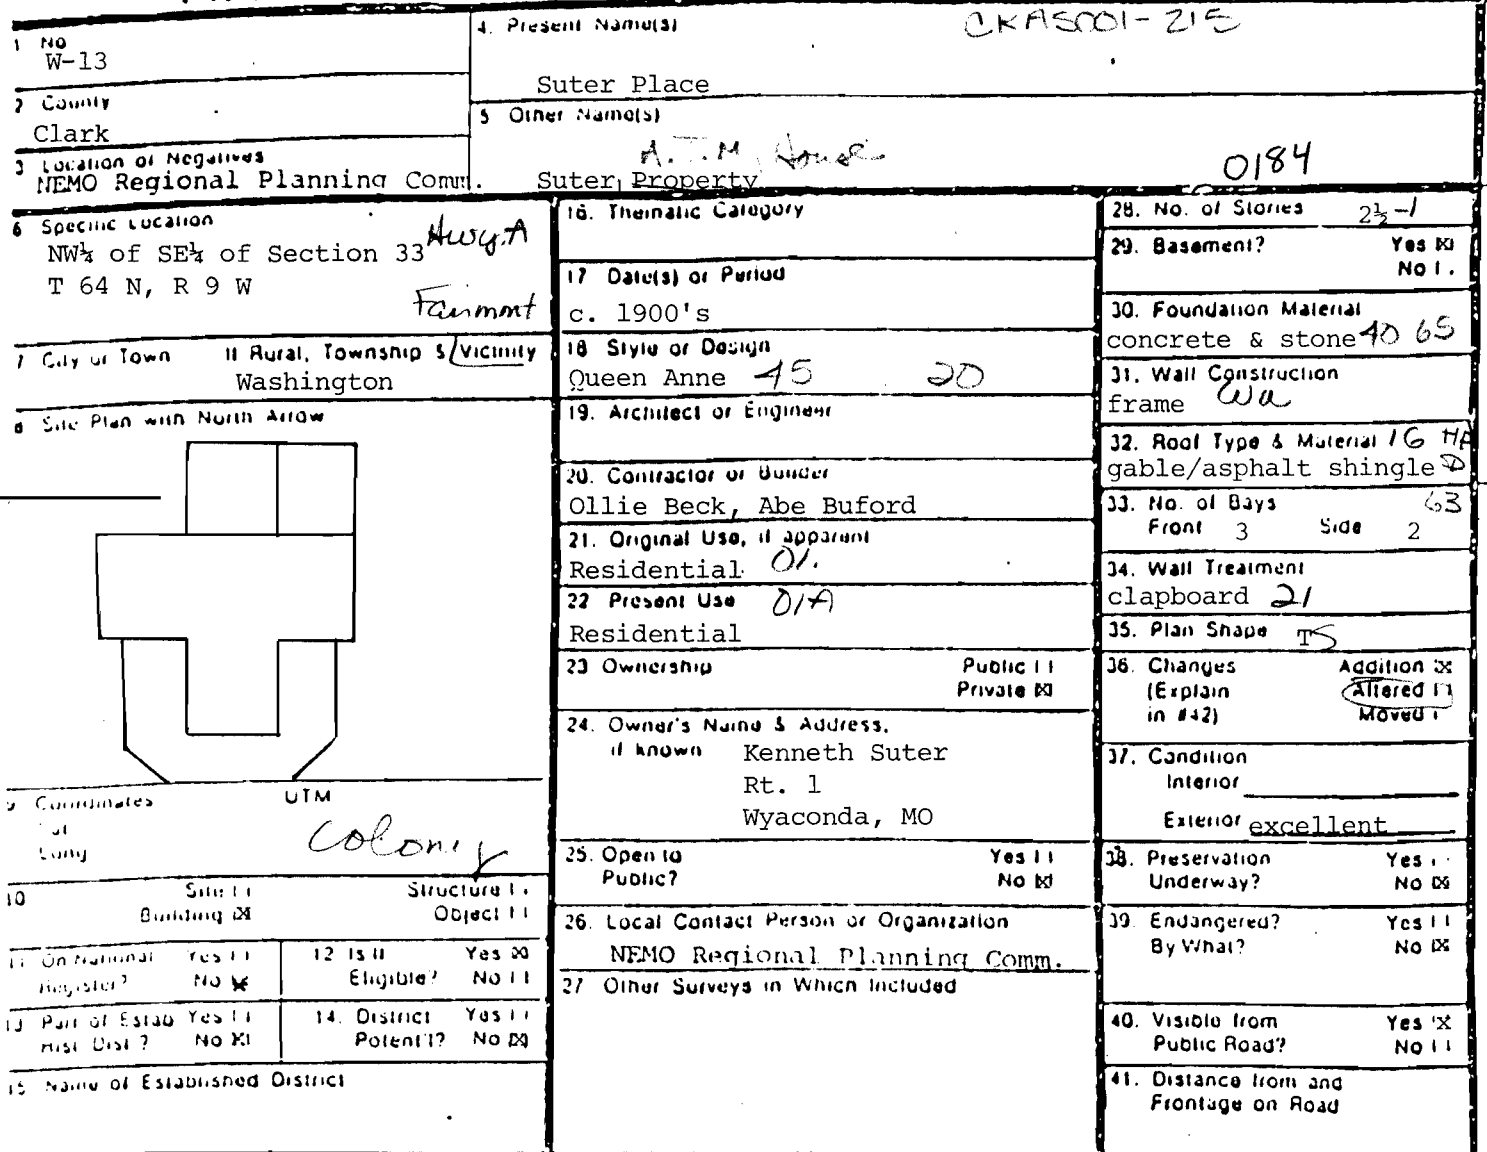 1 No
W-13
4. Present Name(s)
CKAS001-215
Suter Place
2 County
Clark
5 Other Name(s)
House
Suter Property
0184
3 Location of Negatives
NEMO Regional Planning Comm.
6 Specific Location
NW¼ of SE¼ of Section 33 Hwy. A
T 64 N, R 9 W
Fairmont
7 City or Town If Rural, Township & Vicinity
Washington
8 Site Plan with North Arrow
9 Coordinates UTM
Lat
Long
Colony
10 Site [ ] Structure [ ]
Building [X] Object [ ]
11 On National Register? Yes [ ] No [X]
12 Is It Eligible? Yes [X] No [ ]
13 Part of Estab Hist Dist? Yes [ ] No [X]
14. District Potent'l? Yes [ ] No [X]
15 Name of Established District
16. Thematic Category
17 Date(s) or Period
c. 1900's
18 Style or Design
Queen Anne 45 20
19. Architect or Engineer
20. Contractor or Builder
Ollie Beck, Abe Buford
21. Original Use, if apparent
Residential 01.
22 Present Use 01A
Residential
23 Ownership Public [ ]
Private [X]
24. Owner's Name & Address,
if known Kenneth Suter
Rt. 1
Wyaconda, MO
25. Open to Yes [ ]
Public? No [X]
26. Local Contact Person or Organization
NEMO Regional Planning Comm.
27 Other Surveys in Which Included
28. No. of Stories 2½ -1
29. Basement? Yes [X]
No [ ]
30. Foundation Material
concrete & stone 40 65
31. Wall Construction
frame Wa
32. Roof Type & Material 16
gable/asphalt shingle
33. No. of Bays 63
Front 3 Side 2
34. Wall Treatment
clapboard 21
35. Plan Shape T
36. Changes Addition [X]
(Explain Altered [ ]
in #42) Moved [ ]
37. Condition
Interior
Exterior excellent
38. Preservation Yes [ ]
Underway? No [X]
39. Endangered? Yes [ ]
By What? No [X]
40. Visible from Yes [X]
Public Road? No [ ]
41. Distance from and
Frontage on Road